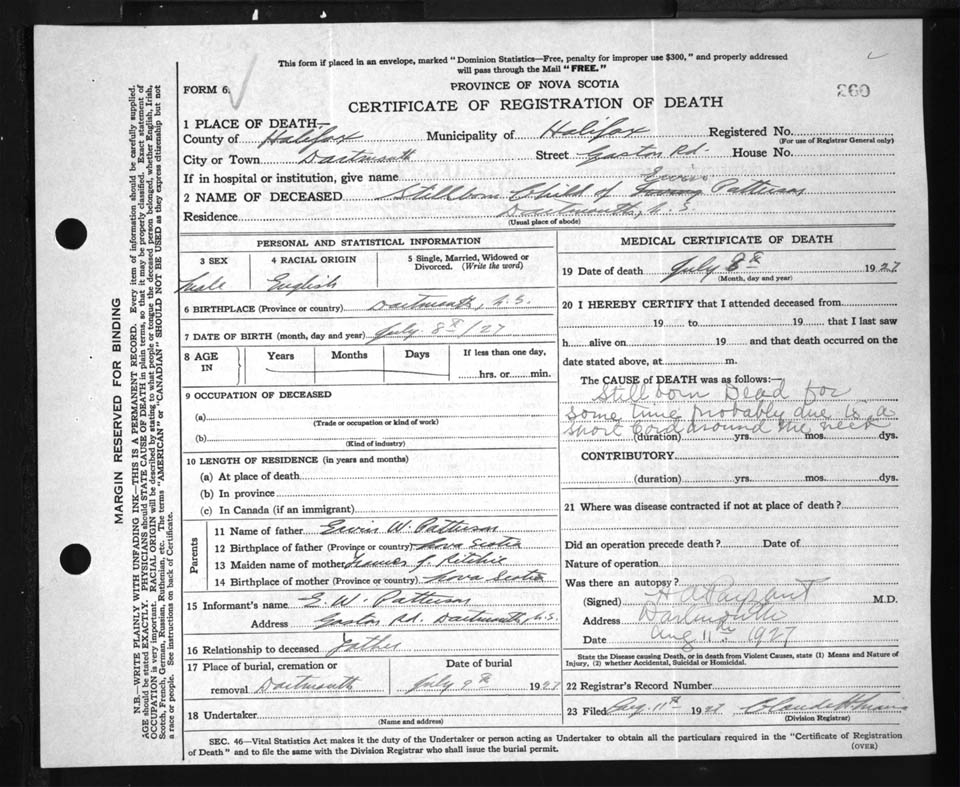 This form if placed in an envelope, marked "Dominion Statistics—Free, penalty for improper use $300," and properly addressed
will pass through the Mail "FREE."
FORM 6.
PROVINCE OF NOVA SCOTIA
CERTIFICATE OF REGISTRATION OF DEATH
260
1 PLACE OF DEATH—
County of Halifax Municipality of Halifax Registered No.
(For use of Registrar General only)
City or Town Dartmouth Street Gaston Rd. House No.
If in hospital or institution, give name
Erwin
2 NAME OF DECEASED Stillborn Child of Patterson
Residence Dartmouth, N.S.
(Usual place of abode)
PERSONAL AND STATISTICAL INFORMATION
3 SEX 4 RACIAL ORIGIN 5 Single, Married, Widowed or
Divorced. (Write the word)
Male English
6 BIRTHPLACE (Province or country) Dartmouth, N.S.
7 DATE OF BIRTH (month, day and year) July 8th/27
8 AGE IN Years Months Days If less than one day,
hrs. or min.
9 OCCUPATION OF DECEASED
(a)
(Trade or occupation or kind of work)
(b)
(Kind of industry)
10 LENGTH OF RESIDENCE (in years and months)
(a) At place of death
(b) In province
(c) In Canada (if an immigrant)
Parents
11 Name of father Erwin W. Patterson
12 Birthplace of father (Province or country) Nova Scotia
13 Maiden name of mother Frances J. Ritchie
14 Birthplace of mother (Province or country) Nova Scotia
15 Informant's name E. W. Patterson
Address Gaston Rd. Dartmouth, N.S.
16 Relationship to deceased Father
17 Place of burial, cremation or Date of burial
removal Dartmouth July 9th 1927
18 Undertaker
(Name and address)
MEDICAL CERTIFICATE OF DEATH
19 Date of death July 8th 1927
(Month, day and year)
20 I HEREBY CERTIFY that I attended deceased from
19 to 19 that I last saw
h alive on 19 and that death occurred on the
date stated above, at m.
The CAUSE of DEATH was as follows:—
Still born Dead for
some time probably due to a
short cord around the neck
(duration) yrs. mos. dys.
CONTRIBUTORY
(duration) yrs. mos. dys.
21 Where was disease contracted if not at place of death?
Did an operation precede death? Date of
Nature of operation
Was there an autopsy?
(Signed) H A Payzant M.D.
Address Dartmouth
Date Aug 11th 1927
State the Disease causing Death, or in death from Violent Causes, state (1) Means and Nature of
Injury, (2) whether Accidental, Suicidal or Homicidal.
22 Registrar's Record Number
23 Filed Aug. 11th 1927
(Division Registrar)
SEC. 46—Vital Statistics Act makes it the duty of the Undertaker or person acting as Undertaker to obtain all the particulars required in the "Certificate of Registration
of Death" and to file the same with the Division Registrar who shall issue the burial permit.
(OVER)
MARGIN RESERVED FOR BINDING
N.B.—WRITE PLAINLY WITH UNFADING INK—THIS IS A PERMANENT RECORD. Every item of information should be carefully supplied.
AGE should be stated EXACTLY. PHYSICIANS should STATE CAUSE OF DEATH in plain terms, so that it may be properly classified. Exact statement of
OCCUPATION is very important. RACIAL ORIGIN will be described by stating to what people or tongue the deceased person belonged, whether English, Irish,
Scotch, French, German, Russian, Ruthenian, etc. The terms "AMERICAN" or "CANADIAN" SHOULD NOT BE USED as they express citizenship but not
a race or people. See instructions on back of Certificate.